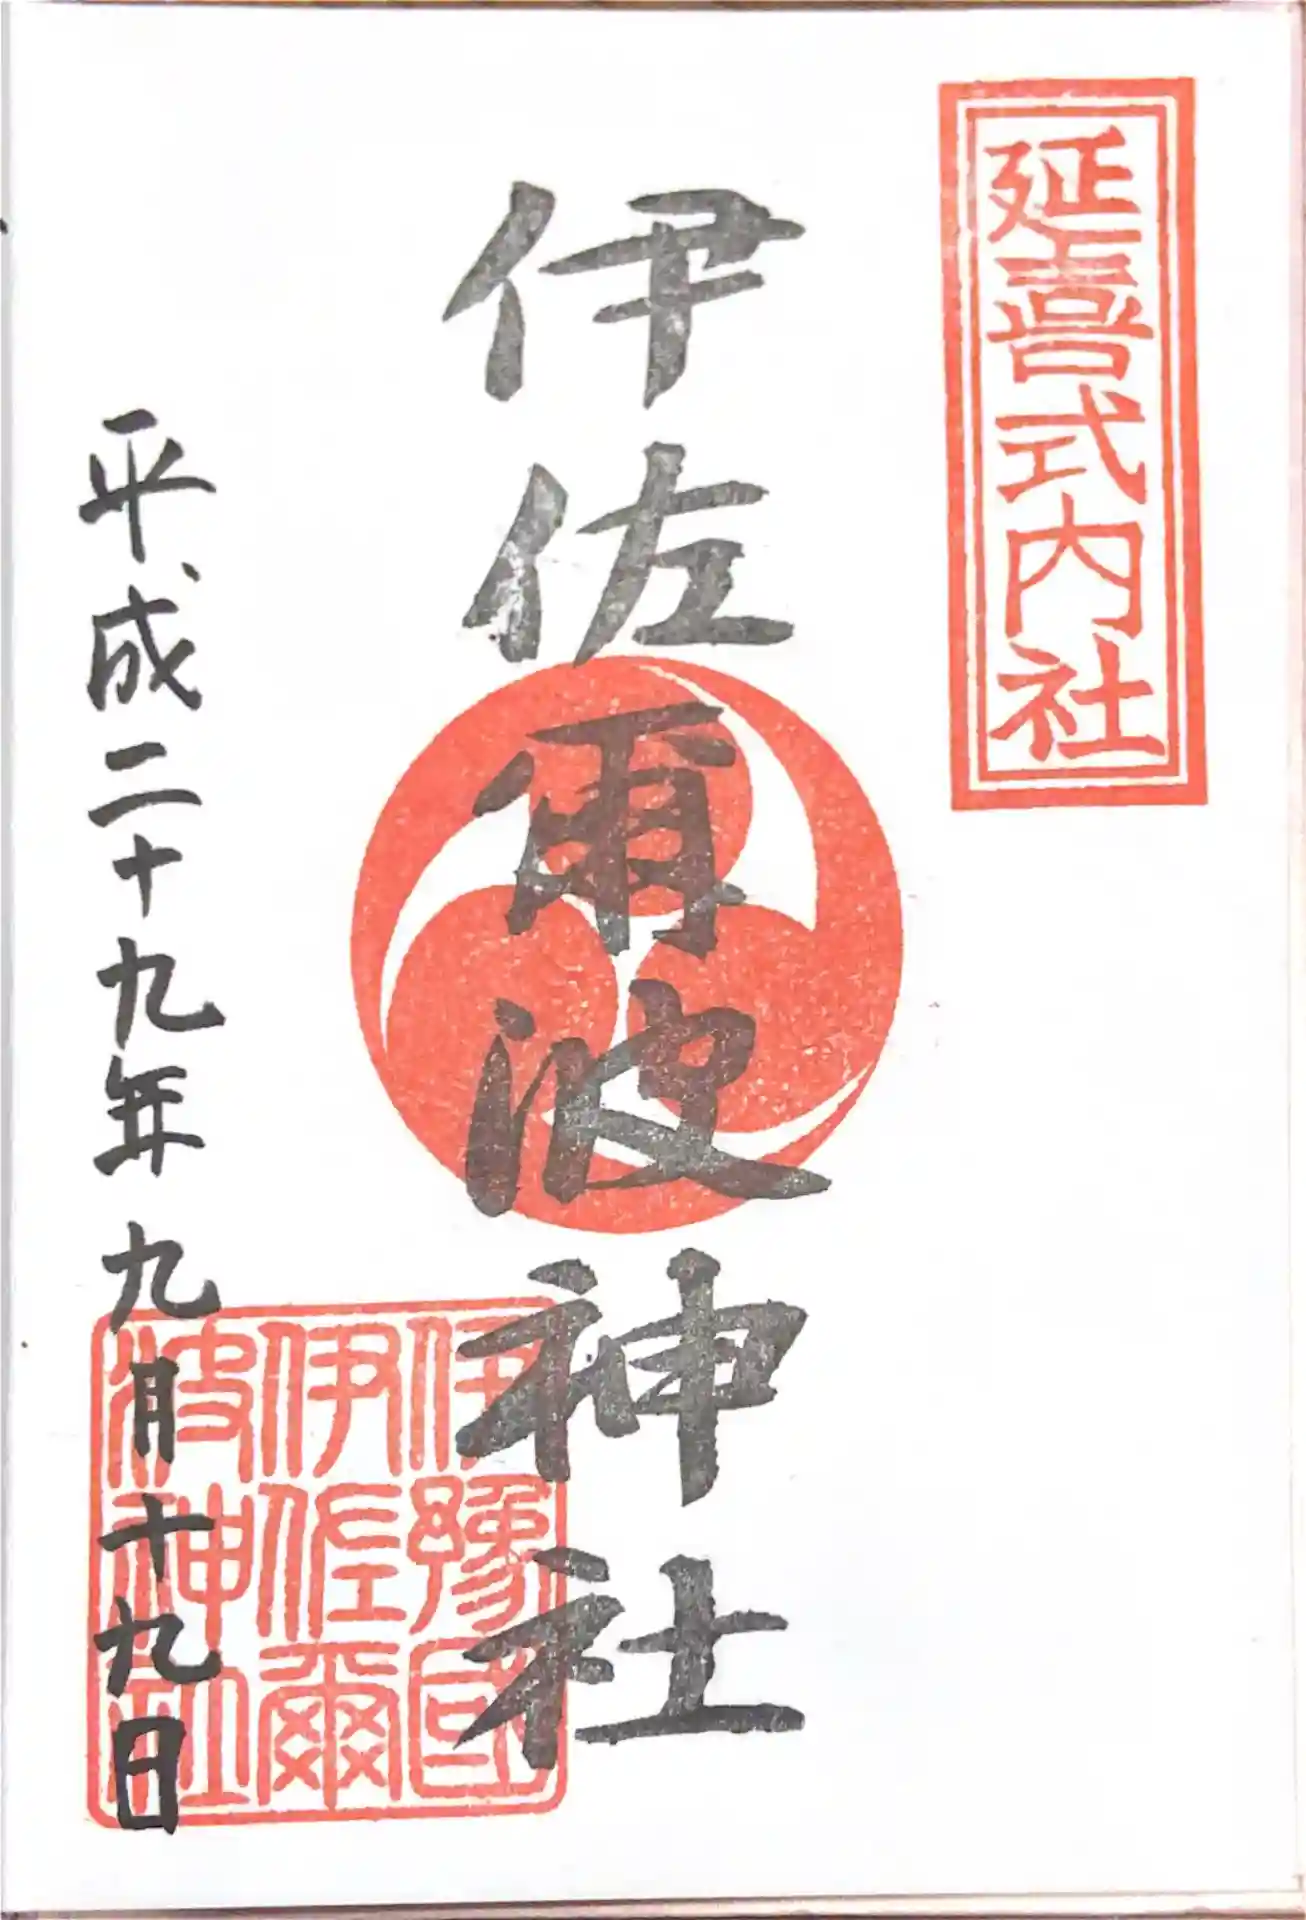 延喜式内社
伊佐爾波神社
伊豫國
伊佐爾
波神社
平成二十九年九月十九日